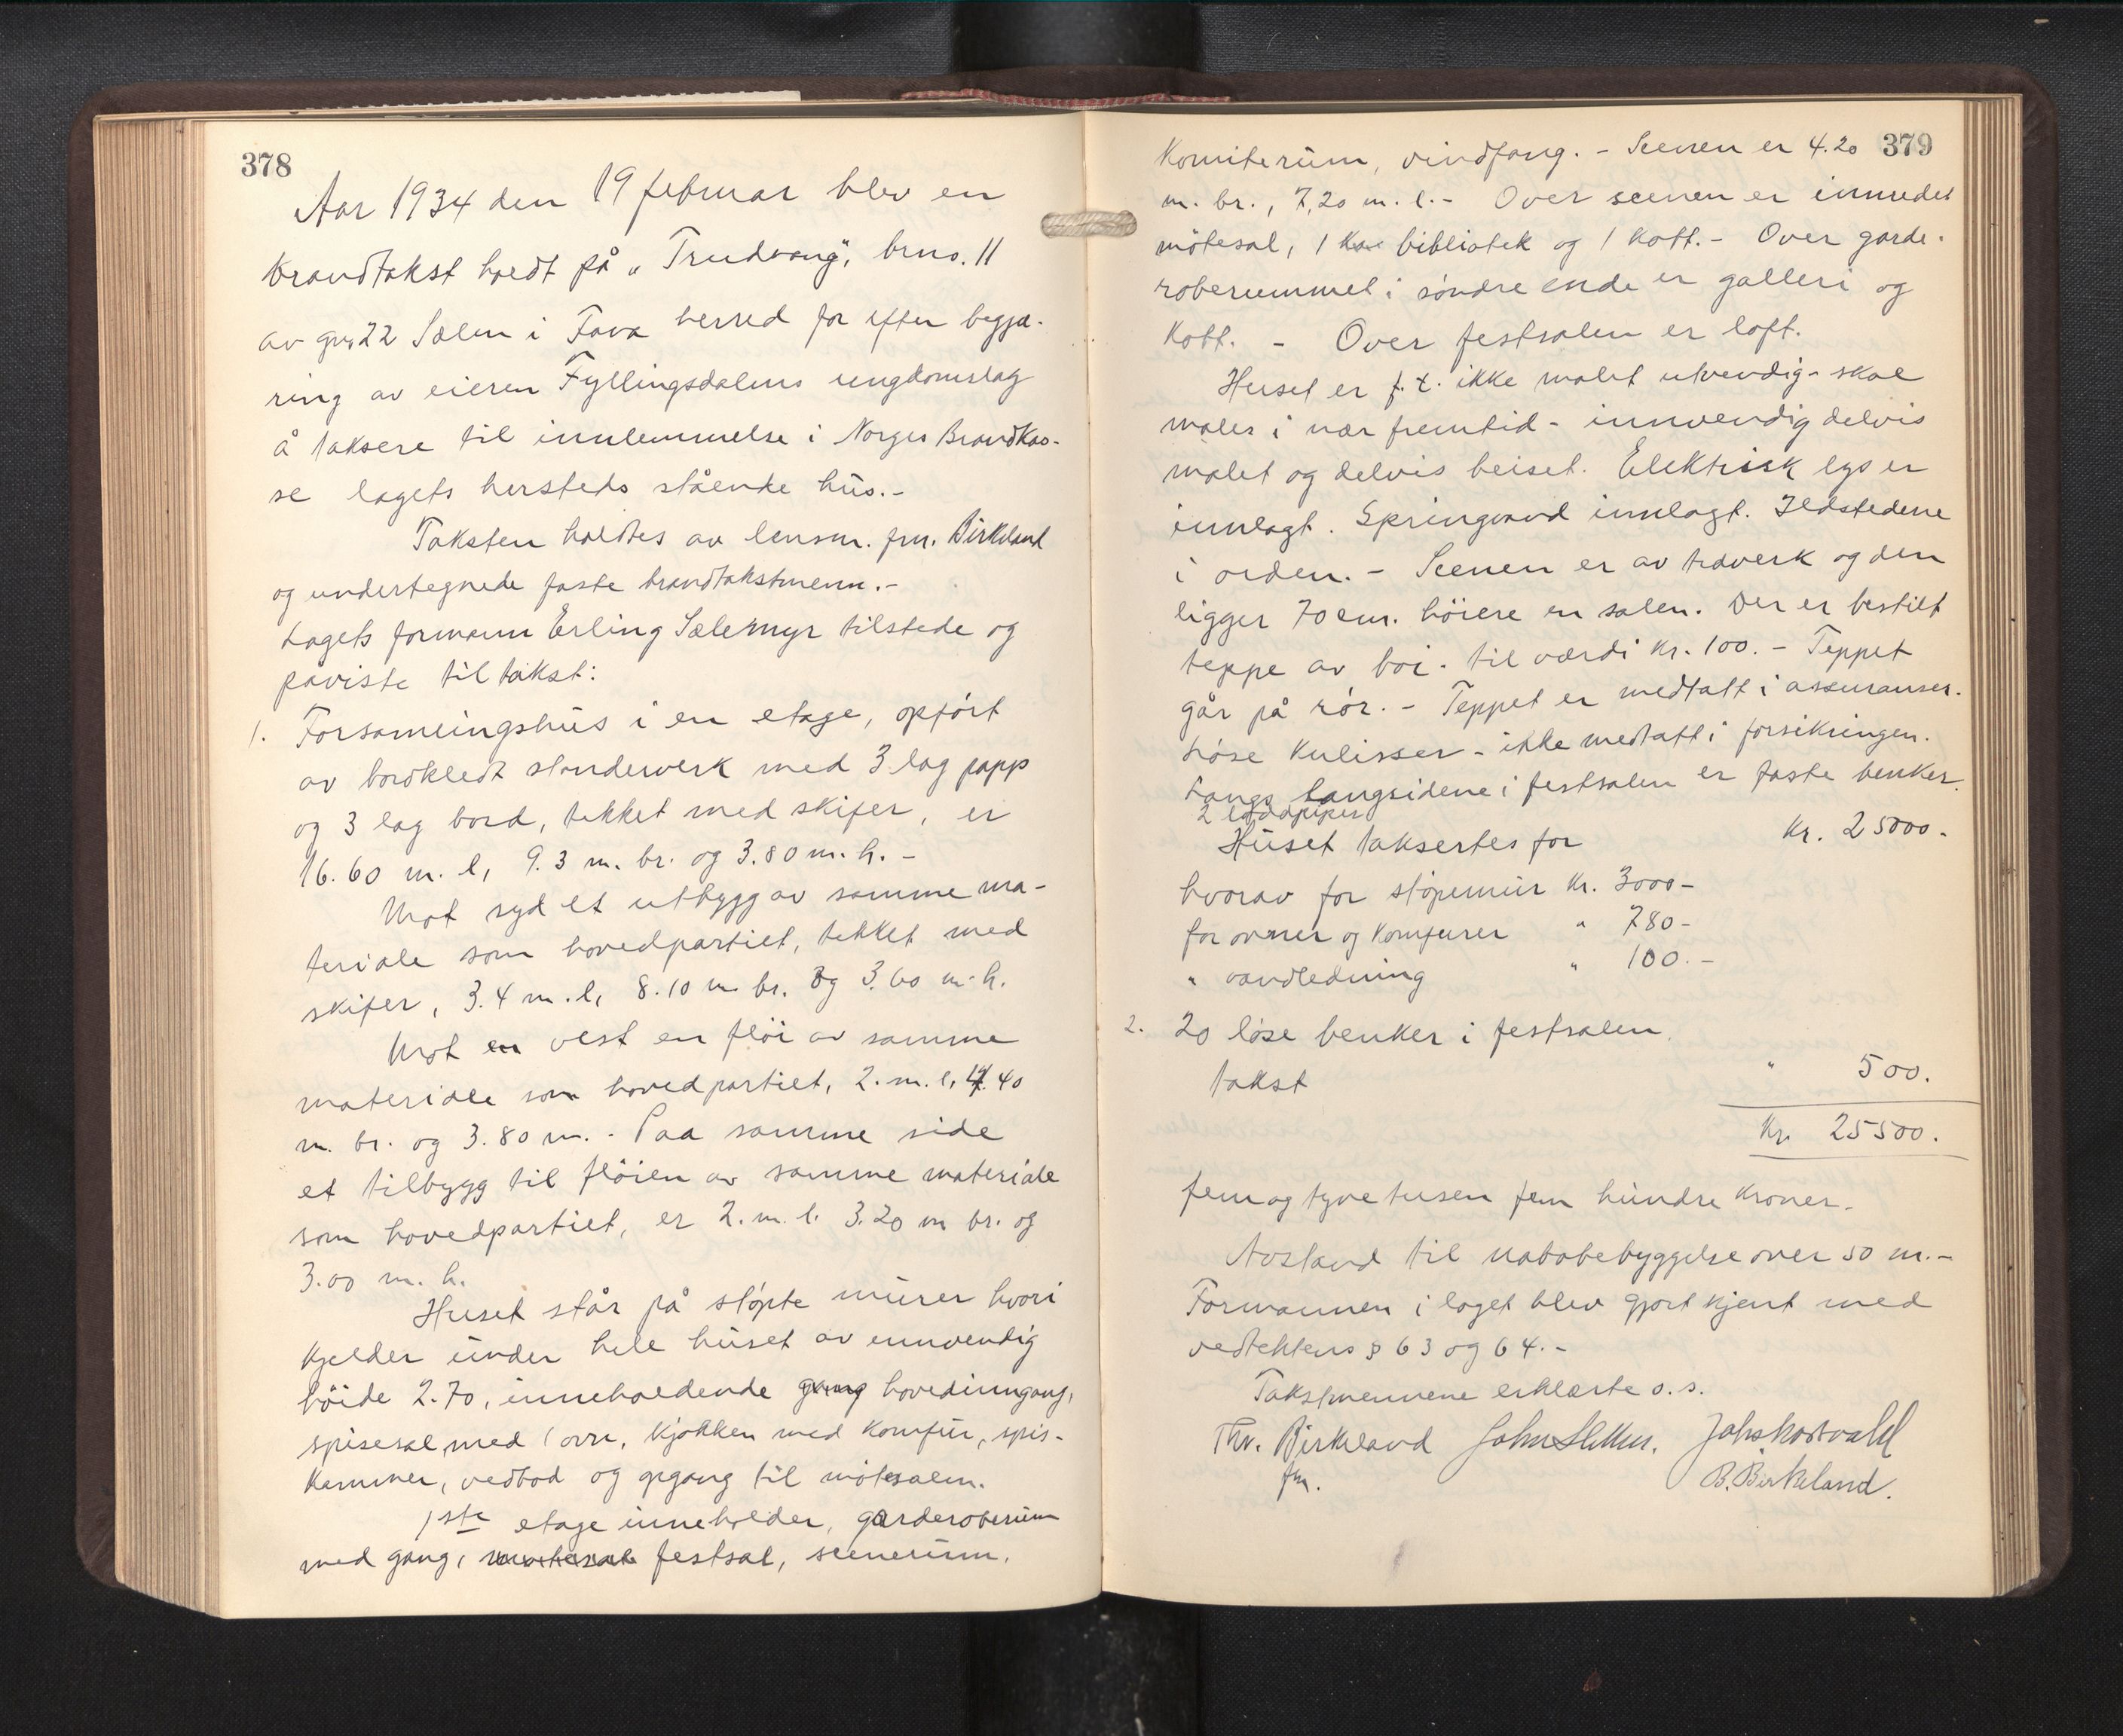 378
Aar 1934 den 19 februar blev en
brandtakst holdt på "Trudvang", brno. 11
av gno 22 Sælen i Fana herred for efter begjæ-
ring av eieren Fyllingsdalens ungdomslag
å taksere til innlemmelse i Norges Brandkas-
se lagets hersteds stående hus.-
Taksten holdtes av lensm. fm. Birkeland
og undertegnede faste brandtakstmenn.-
Lagets formann Erling Sælemyr tilstede og
påviste til takst:
1. Forsamlingshus i en etage, opført
av bordkledt standerverk med 3 lag papp
og 3 lag bord, tekket med skifer, er
16.60 m. l, 9.3 m. br. og 3.80 m. h. -
Mot syd et utbygg av samme ma-
teriale som hovedpartiet, tekket med
skifer, 3.4 m. l, 8.10 m br. og 3.60 m. h.
Mot en vest en fløi av samme
materiale som hovedpartiet, 2. m. l, 4.40
m. br. og 3.80 m. - Paa samme side
et tilbygg til fløien av samme materiale
som hovedpartiet, er 2. m. l. 3.20 m br. og
3.00 m. h.
Huset står på støpte murer hvori
kjelder under hele huset av innvendig
höide 2.70, inneholdende gang hovedinngang,
spisesal med 1 ovn, kjøkken med komfur, spis-
kammer, vedbod og opgang til møtesalen.
1ste etage inneholder, garderoberum
med gang, møtesal festsal, scenerum,
379
Komiterum, vindfang. - Scenen er 4.20
m. br., 7,20 m. l. - Over scenen er innredet
mötesal, 1 bibliotek og 1 kott. - Over garde-
roberummet i søndre ende er galleri og
kott. - Over festsalen er loft.
Huset er f. t. ikke malet utvendig - skal
males i nær fremtid - innvendig delvis
malet og delvis beiset. Elektrisk lys er
innlagt. Springvand innlagt. Ildstedene
i orden. - Scenen er av treverk og den
ligger 70 cm. höiere en salen. Der er bestilt
teppe av boi - til værdi kr. 100. - Teppet
går på rør. - Teppet er medtatt i assuranser.
Løse kulisser - ikke medtatt i forsikringen.
Langs langsidene i festsalen er faste benker.
2 loddpiper
Huset taksertes for Kr. 25000.
hvorav for støpemur Kr. 3000-
for ovner og komfurer " 780-
" vandledning " 100.-
2. 20 løse benker i festsalen.
takst " 500.
Kr. 25500.
fem og tyve tusen fem hundre kroner.
Avstand til nabobebyggelse over 50 m.-
Formannen i laget blev gjort kjent med
vedtektens § 63 og 64.-
Takstmennene erklærte o. s.
Thv. Birkeland
fm.
B. Birkeland.